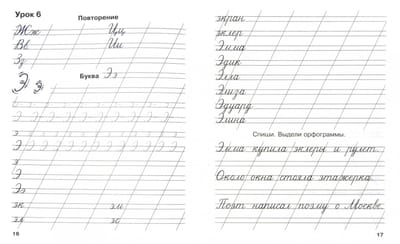 Урок 6
Повторение
Жж Цц
Вв Ии
Зз
Буква Ээ
э
э
Э
Ээ
16
экран
эклер
Эмма
Эдик
Элла
Эльза
Эдуард
Элина
Спиши. Выдели орфограммы.
Эмма купила эклеры и рулет.
Около окна стояла этажерка.
Поэт написал поэму о Москве.
17